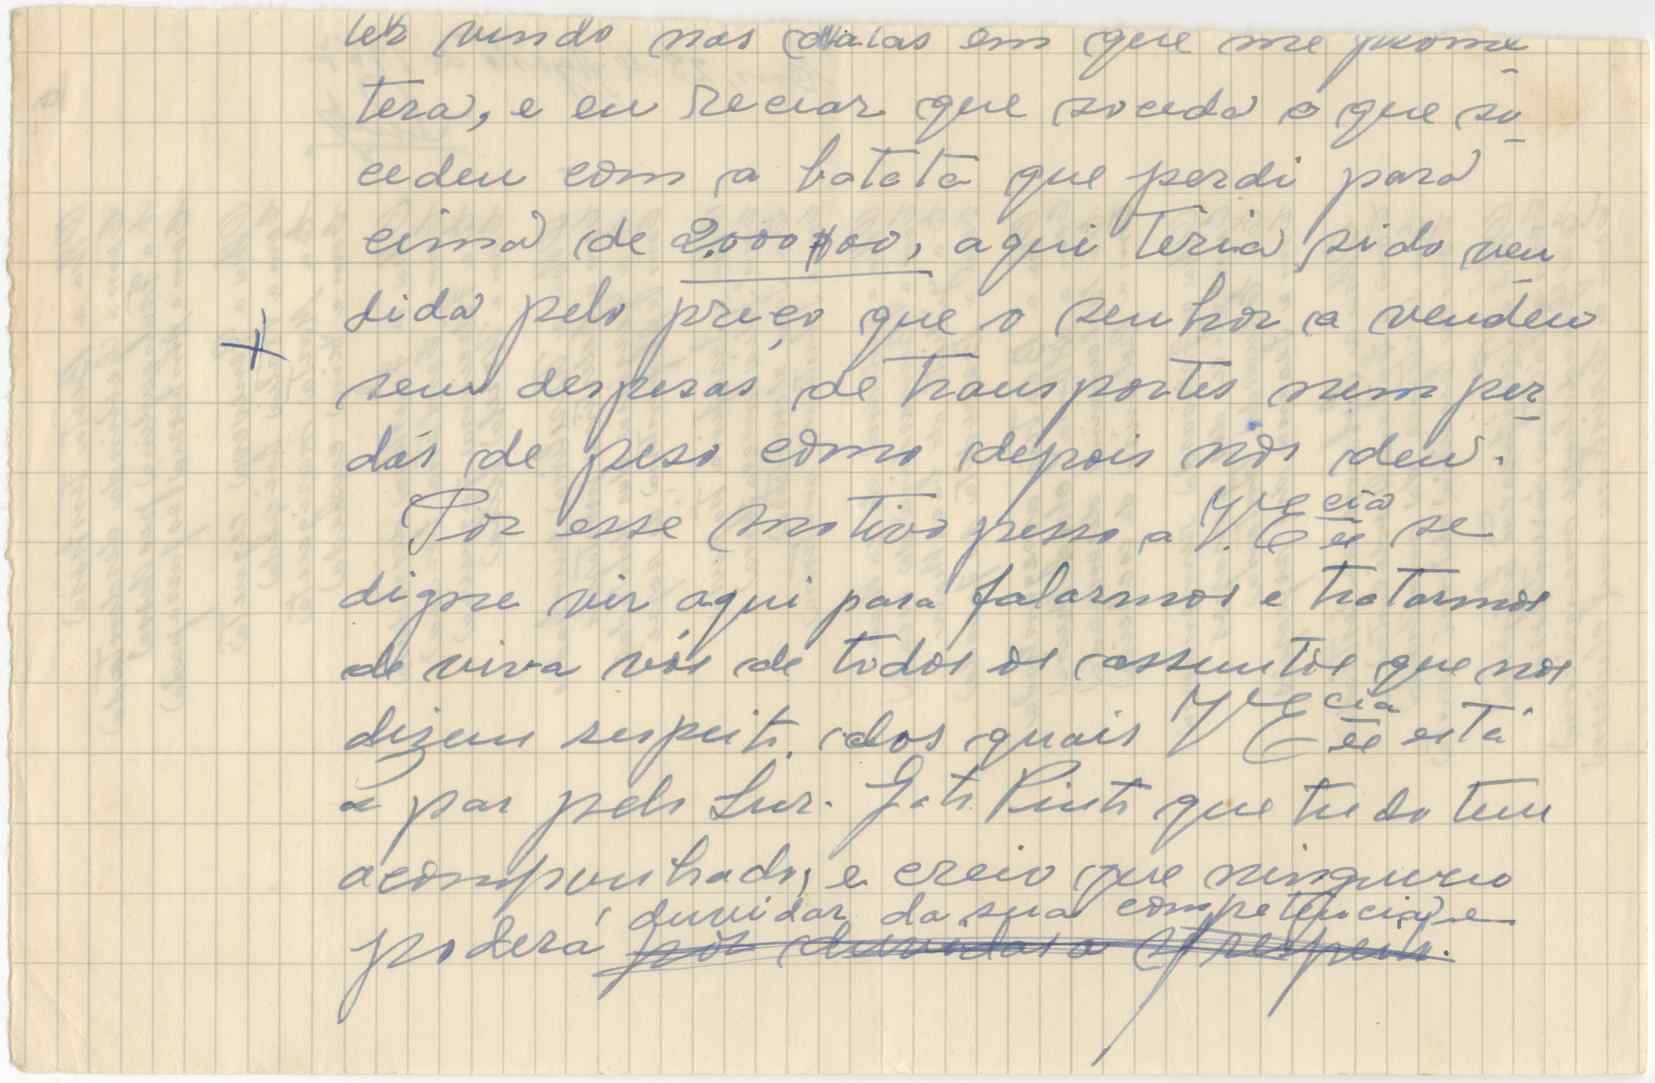 ter vindo nas datas em que me prome
tera, e eu recear que soceda o que su
cedeu com a batata que perdi para
cima de 2.000$00, aqui teria sido ven
dida pelo preço que o senhor a vendeu
sem despesas de transportes nem per
das de peso como depois nos deu.
Por esse motivo pesso a V. Ecia se
digne vir aqui para falarmos e tratarmos
de viva vós de todos os assuntos que nos
dizem respeito, dos quais V Ecia está
a par pelo Snr. Pinto que tudo tem
acompanhado, e creio que ninguem
duvidar da sua competencia, e
poderá pôr duvidas a respeito.